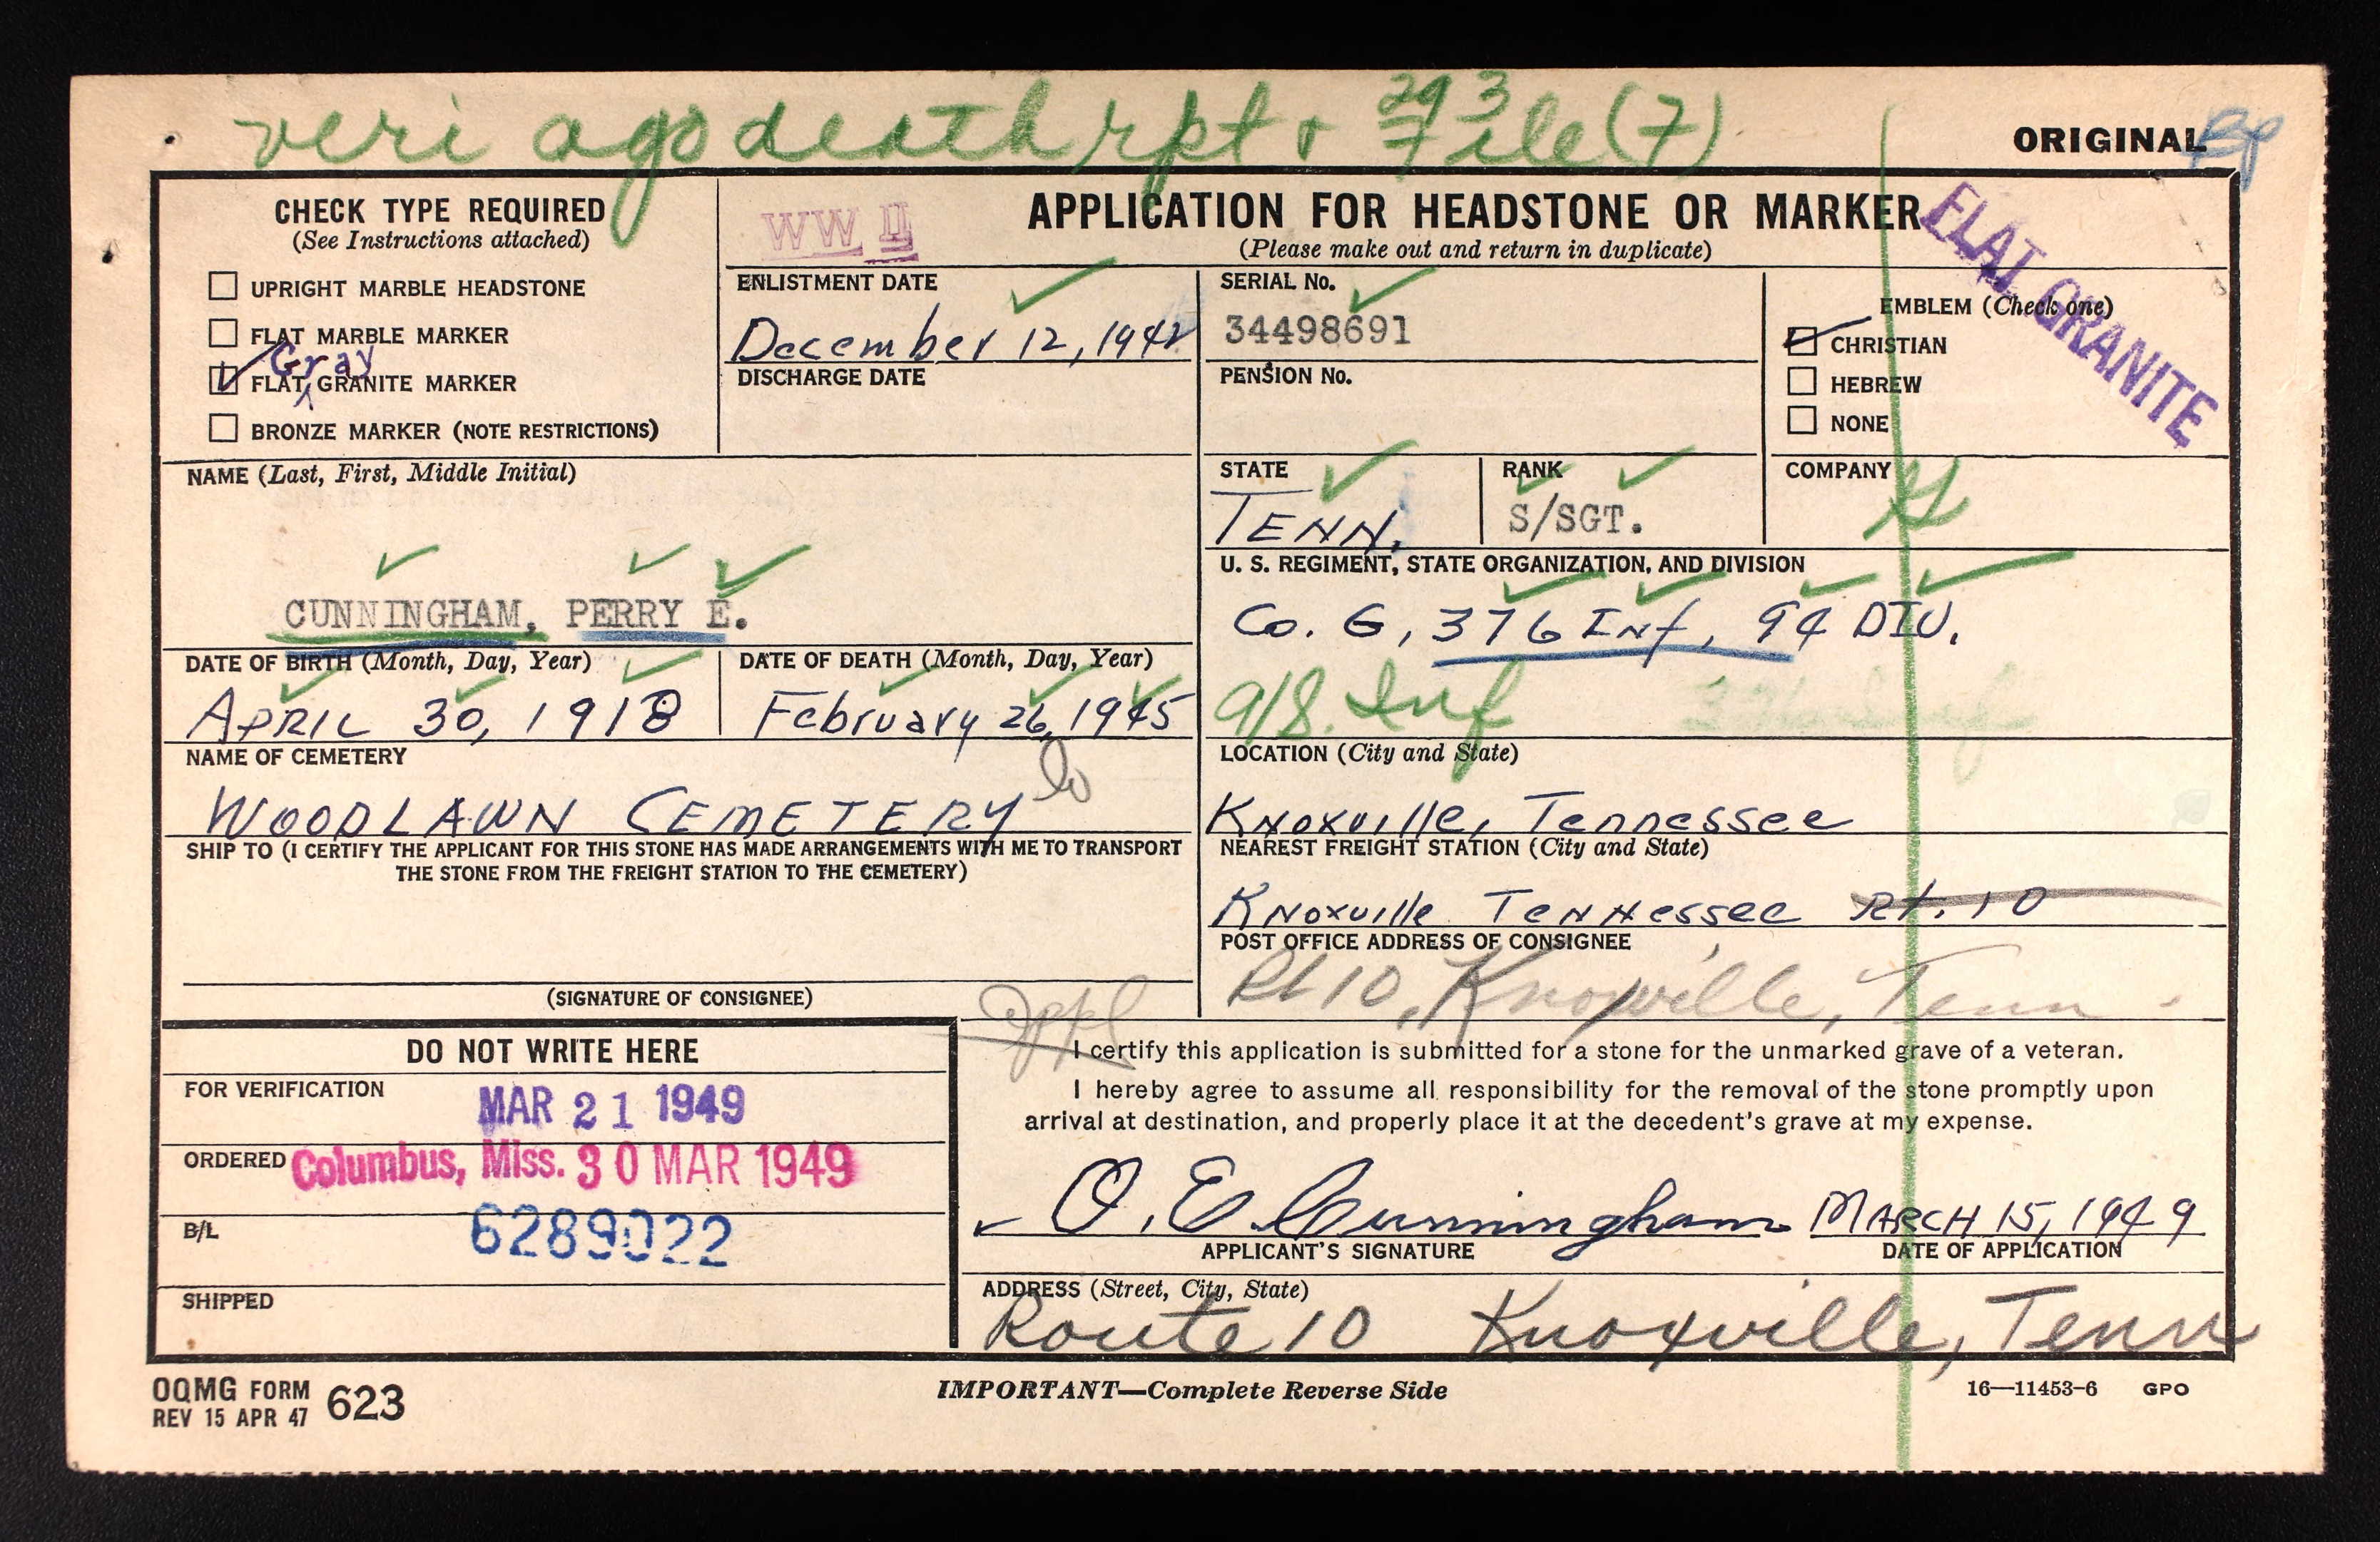 veri ago death rpt & 293 File (7)
ORIGINAL
CHECK TYPE REQUIRED
(See Instructions attached)
☐ UPRIGHT MARBLE HEADSTONE
☐ FLAT MARBLE MARKER
Gray
☑ FLAT GRANITE MARKER
☐ BRONZE MARKER (NOTE RESTRICTIONS)
WW II
APPLICATION FOR HEADSTONE OR MARKER
(Please make out and return in duplicate)
FLAT GRANITE
ENLISTMENT DATE
December 12, 1942
DISCHARGE DATE
SERIAL No.
34498691
PENSION No.
EMBLEM (Check one)
☑ CHRISTIAN
☐ HEBREW
☐ NONE
NAME (Last, First, Middle Initial)
CUNNINGHAM, PERRY E.
STATE
TENN.
RANK
S/SGT.
COMPANY
G
U. S. REGIMENT, STATE ORGANIZATION, AND DIVISION
Co. G, 376 Inf, 94 DIV.
918. Inf
DATE OF BIRTH (Month, Day, Year)
APRIL 30, 1918
DATE OF DEATH (Month, Day, Year)
February 26, 1945
NAME OF CEMETERY
WOODLAWN CEMETERY
LOCATION (City and State)
Knoxville, Tennessee
SHIP TO (I CERTIFY THE APPLICANT FOR THIS STONE HAS MADE ARRANGEMENTS WITH ME TO TRANSPORT
THE STONE FROM THE FREIGHT STATION TO THE CEMETERY)
NEAREST FREIGHT STATION (City and State)
Knoxville Tennessee Rt. 10
POST OFFICE ADDRESS OF CONSIGNEE
Rt 10, Knoxville, Tenn
(SIGNATURE OF CONSIGNEE)
appl
DO NOT WRITE HERE
FOR VERIFICATION
MAR 21 1949
ORDERED
Columbus, Miss. 30 MAR 1949
B/L
6289022
SHIPPED
I certify this application is submitted for a stone for the unmarked grave of a veteran.
I hereby agree to assume all responsibility for the removal of the stone promptly upon
arrival at destination, and properly place it at the decedent's grave at my expense.
O. E. Cunningham MARCH 15, 1949
APPLICANT'S SIGNATURE
DATE OF APPLICATION
ADDRESS (Street, City, State)
Route 10 Knoxville, Tenn
OQMG FORM 623
REV 15 APR 47
IMPORTANT—Complete Reverse Side
16—11453-6 GPO